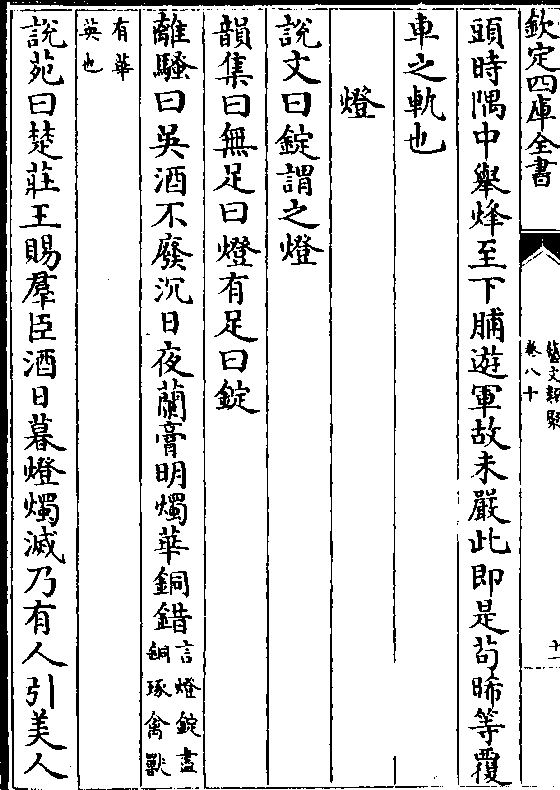 欽定四庫全書
藝文類聚
卷八十
頭時隅中舉烽至下脯遊軍故未嚴此即是茍晞等覆
車之軌也
燈
說文曰錠謂之燈
韻集曰無足曰燈有足曰錠
離騷曰吳酒不廢沉日夜蘭膏明燭華銅錯言燈錠盡
銅琢禽獸
有華
英也
說苑曰楚莊王賜羣臣酒日暮燈燭滅乃有人引美人